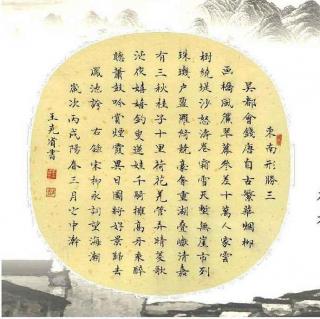 東南形勝三
吳都會錢唐自古繁華烟柳
畫橋風簾翠幕參差十萬人家雲
樹繞堤沙怒濤卷霜雪天塹無崖市列
珠璣户盈羅綺競豪奢重湖疊巘清嘉
有三秋桂子十里荷花羌管弄晴菱歌
泛夜嬉嬉釣叟蓮娃千騎擁高牙乘醉
聽簫鼓吟賞煙霞異日圖將好景歸去
鳳池誇 右錄宋柳永詞望海潮
歲次丙戌陽春三月
王克書